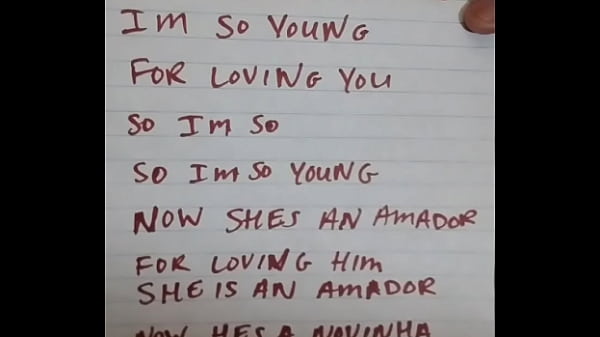 IM SO YOUNG
FOR LOVING YOU
SO IM SO
SO IM SO YOUNG
NOW SHES AN AMADOR
FOR LOVING HIM
SHE IS AN AMADOR
NOW HES A NOVINHA